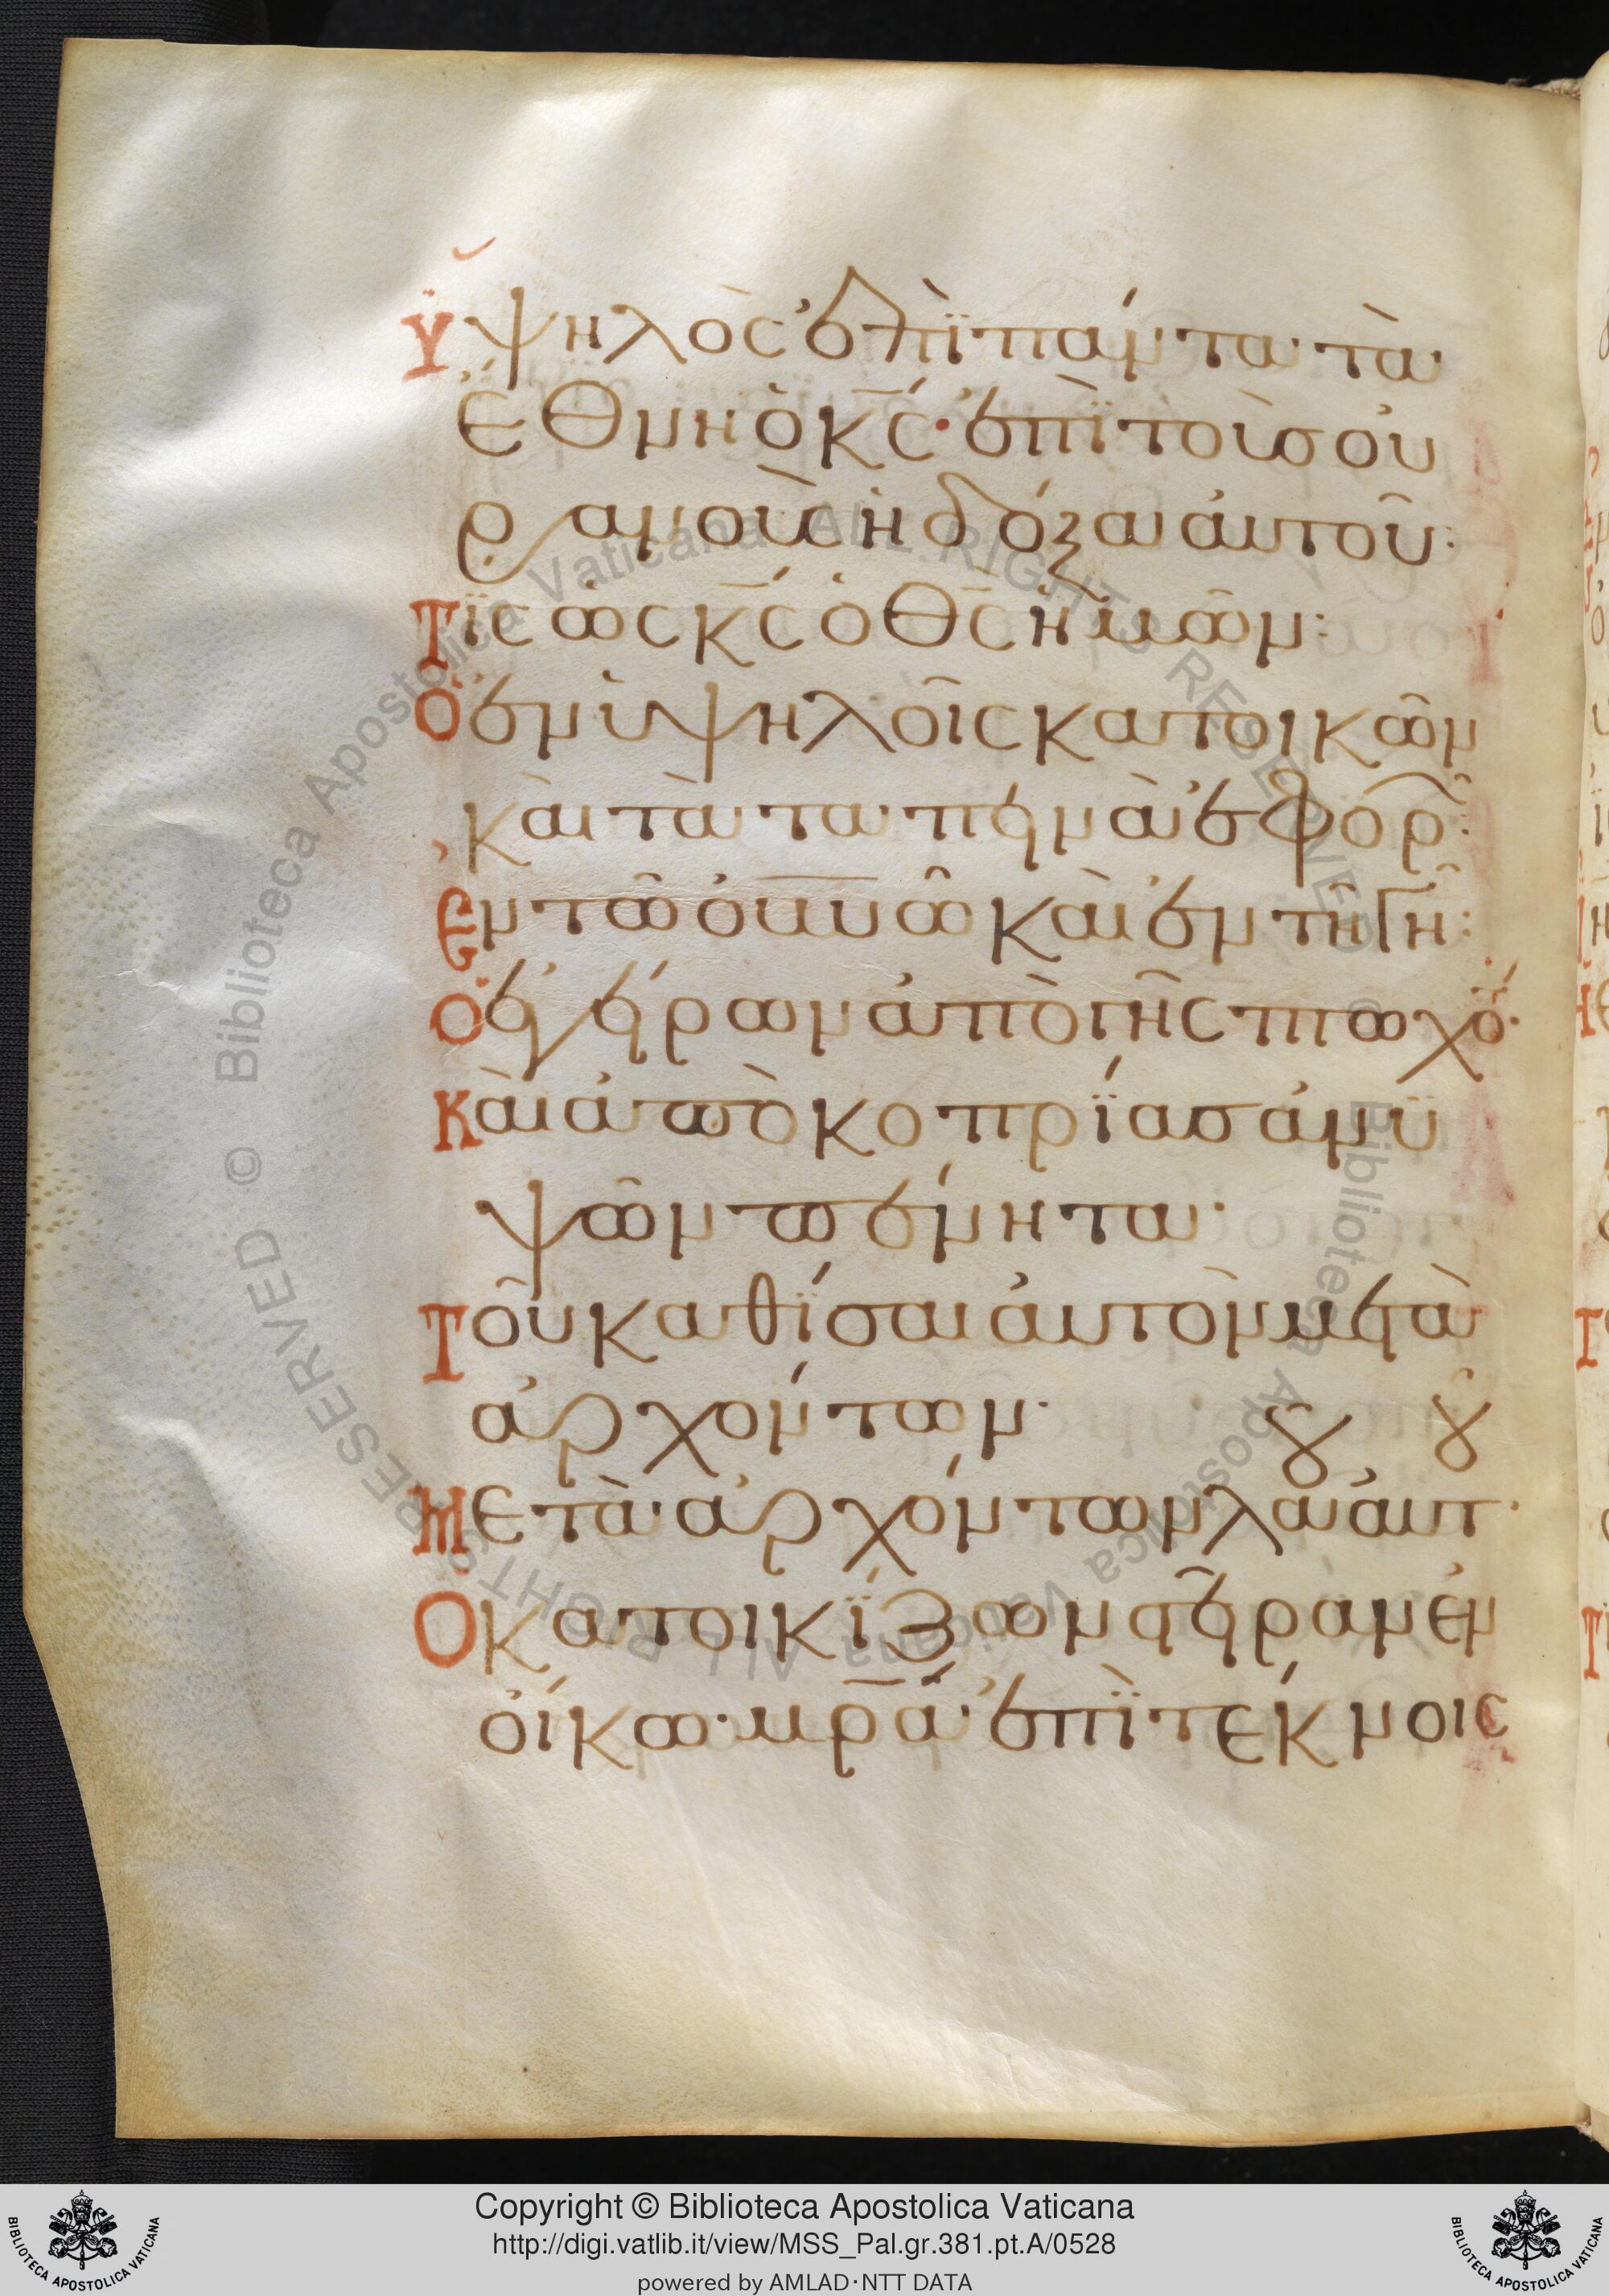 Ὑψηλὸς ἐπῒ πάντα τὰ
ἔθνη ὁ κ̅ς̅· ἐπῒ τοὺς οὐ
ρανοὺς ἡ δόξα αὐτοῦ:
Τῒς ὡς κ̅ς̅ ὁ θ̅ς̅ ἡμῶν:
Ὁ ἐν ὑψηλοῖς κατοικῶν
καὶ τὰ ταπεινὰ ἐφορ͂:
Ἐν τῶ ο̅υ̅ν̅ῶ καὶ ἐν τῆ γῆ:
Ὁ ἐγείρων ἀπὸ γῆς πτωχό·
Καὶ ἀπὸ κοπρΐας ἀνϋ
ψῶν πένητα·
Τοῦ καθΐσαι αὐτὸν μετὰ
ἀρχόντων·
Μετὰ ἀρχόντων λα αὐτ·
Ὁ κατοικΐζων στεῖραν ἐν
οἴκω· μ̅ρ̅ά ἐπῒ τέκνοις
Copyright © Biblioteca Apostolica Vaticana
http://digi.vatlib.it/view/MSS_Pal.gr.381.pt.A/0528
powered by AMLAD·NTT DATA
BIBLIOTECA APOSTOLICA VATICANA
BIBLIOTECA APOSTOLICA VATICANA